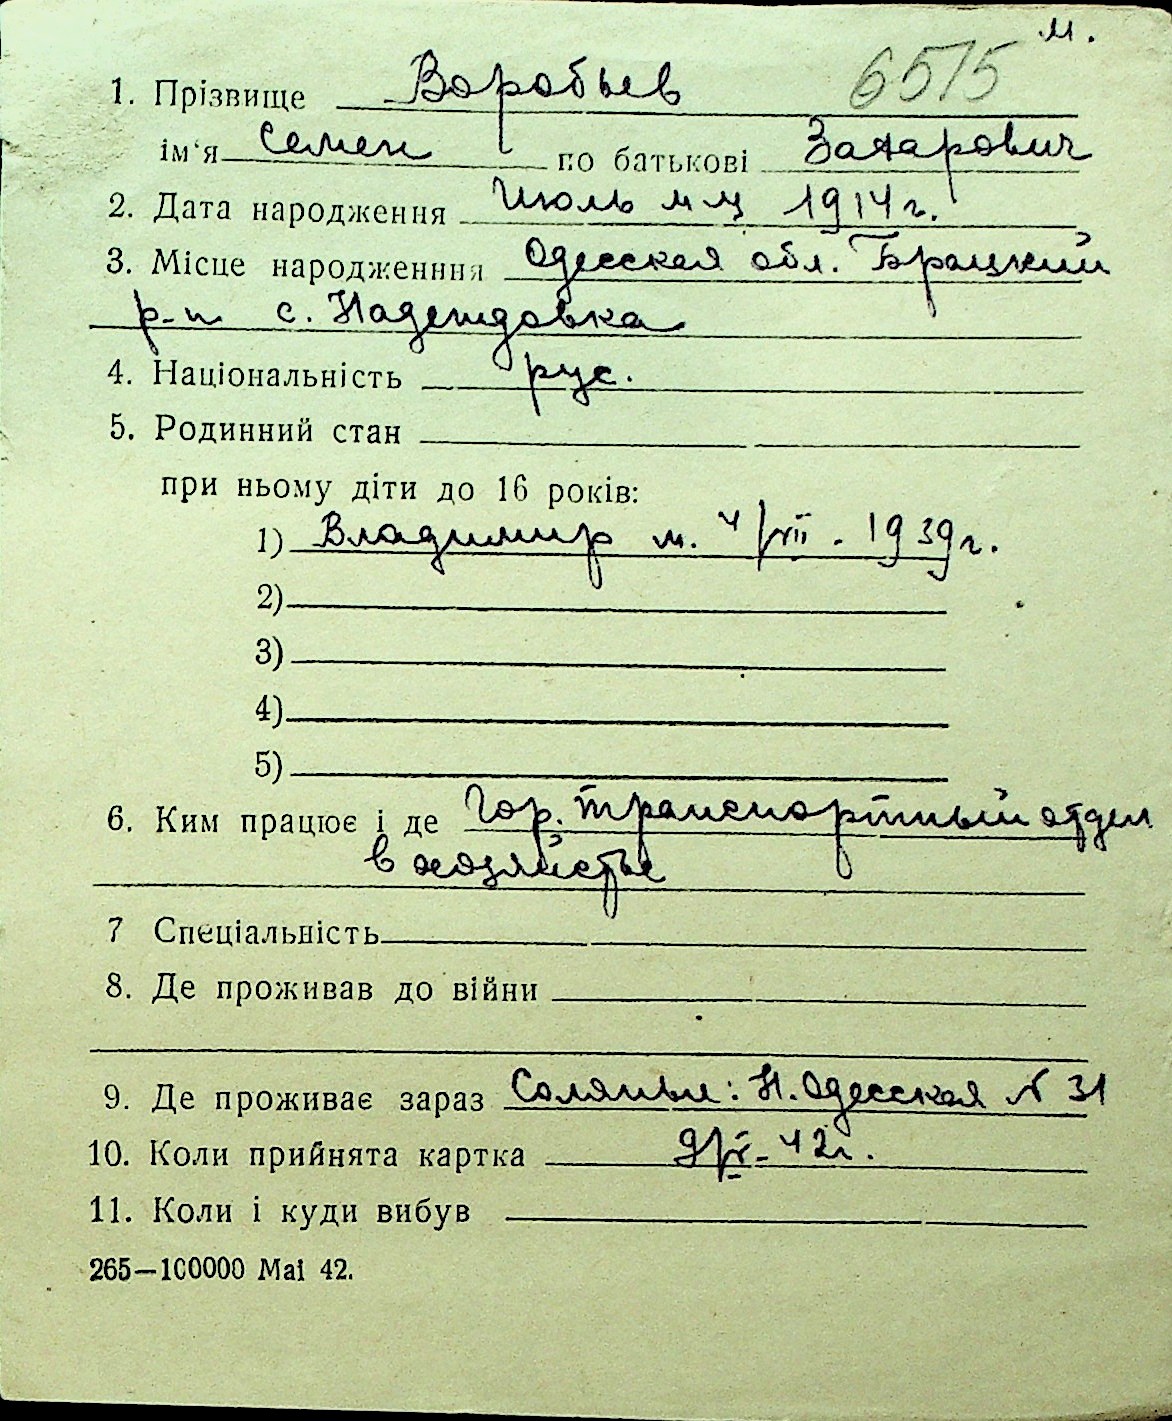 м.
1. Прізвище Воробьев 6515
ім'я Семен по батькові Захарович
2. Дата народження Июль м-ц 1914 г.
3. Місце народженння Одесская обл. Брацкий
р-н с. Надеждовка
4. Національність рус.
5. Родинний стан
при ньому діти до 16 років:
1) Владимир м. 4/VII - 1939 г.
2)
3)
4)
5)
6. Ким працює і де Гор. транспортный отдел
в хозяйстве
7 Спеціальність
8. Де проживав до війни
9. Де проживає зараз Соляные: Н. Одесская № 31
10. Коли прийнята картка 42 г.
11. Коли і куди вибув
265—100000 Mai 42.